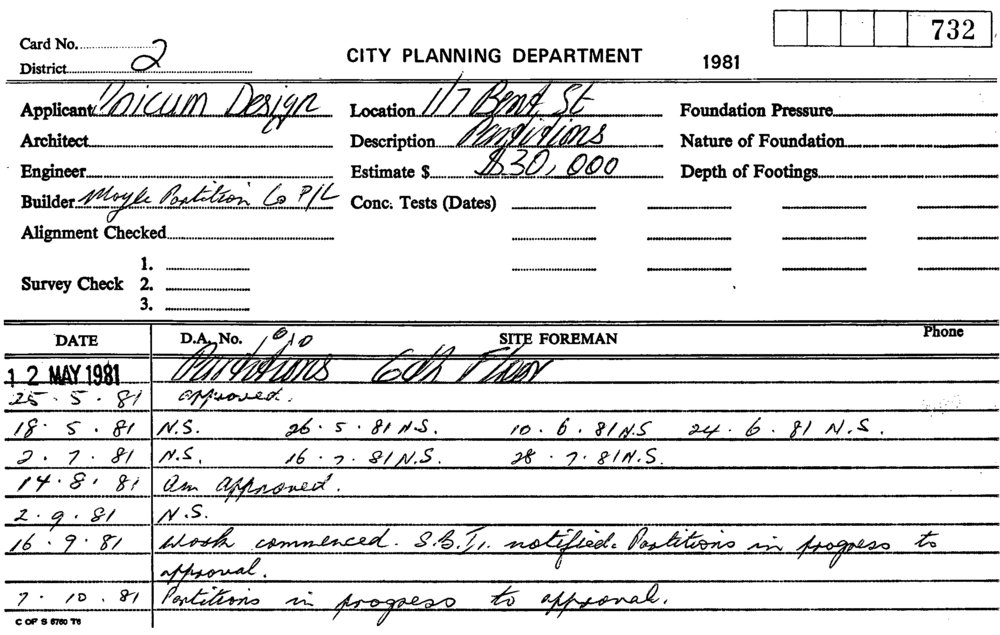 732
Card No.
District 2
CITY PLANNING DEPARTMENT 1981
Applicant Design Location 1/7 Bent St Foundation Pressure
Architect Description Partitions Nature of Foundation
Engineer Estimate $ $30,000 Depth of Footings
Builder Moyle Partition Co P/L Conc. Tests (Dates)
Alignment Checked
1.
Survey Check 2.
3.
DATE D.A. No. SITE FOREMAN Phone
12 MAY 1981 Partitions 6th Floor
25.5.81 approved.
18.5.81 N.S. 26.5.81 N.S. 10.6.81 N.S 24.6.81 N.S.
2.7.81 N.S. 16.7.81 N.S. 28.7.81 N.S.
14.8.81 Am Approved.
2.9.81 N.S.
16.9.81 Work commenced. S.B.I. notified. Partitions in progress to
approval.
7.10.81 Partitions in progress to approval.
C OF S 6760 T6